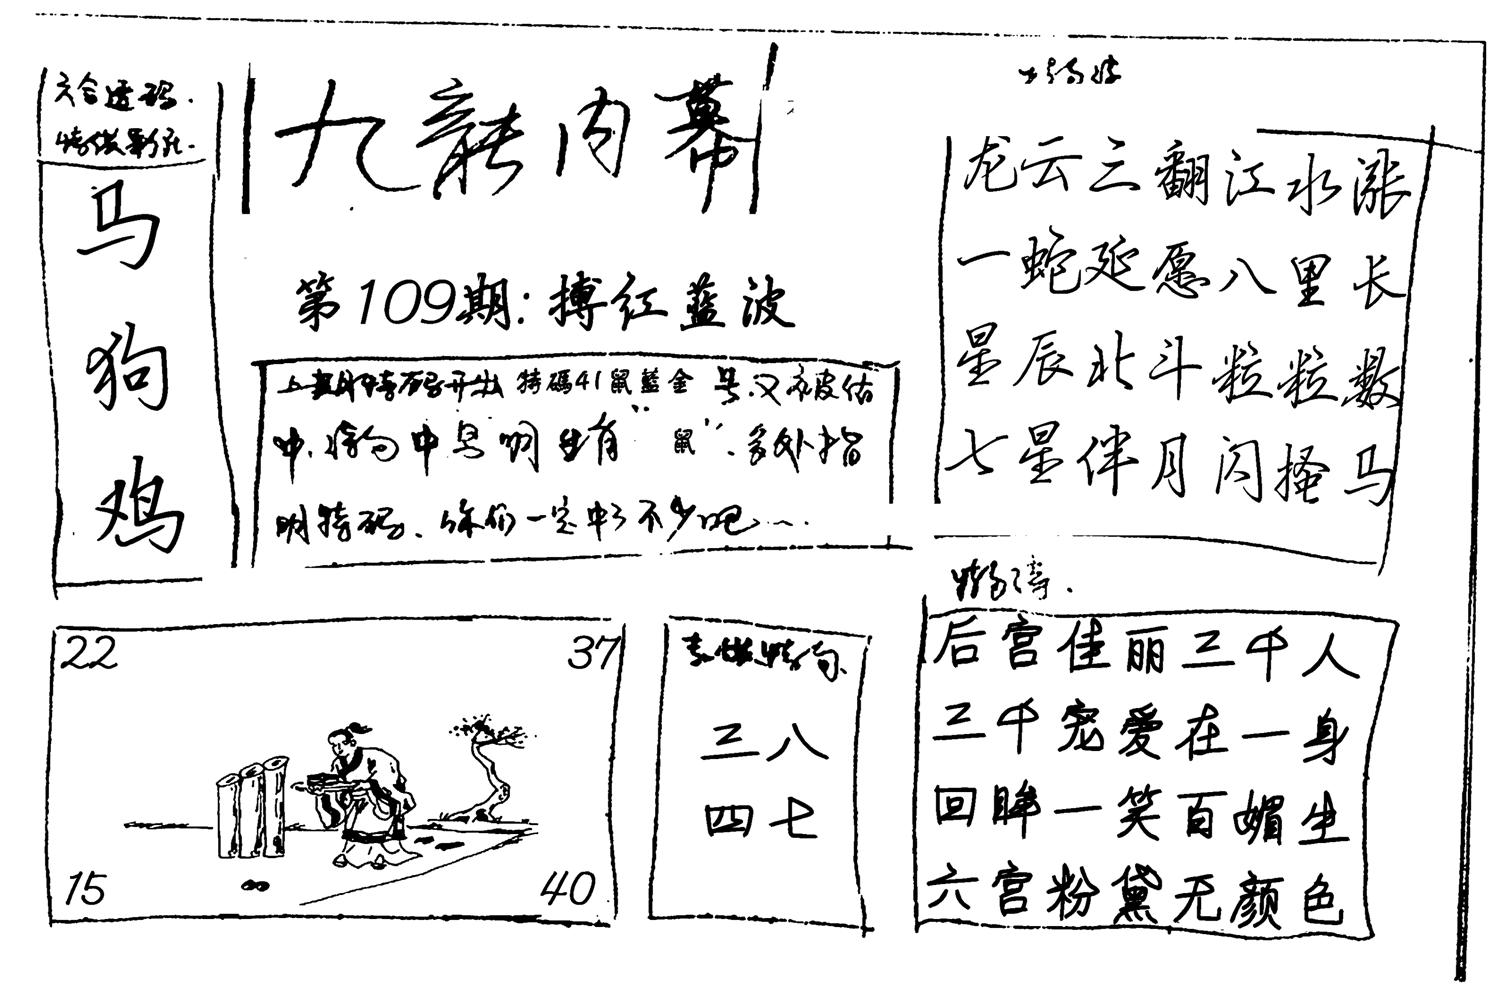 六合透码.
马
狗
鸡
九龍内幕
第109期:搏红蓝波
上期特码开出 特碼41鼠藍金 号.又被估
中.特句中早明生肖"鼠".多处指
明特码.你们一定中了不少吧...
龙云三翻江水涨
一蛇延愿八里长
星辰北斗粒粒数
七星伴月闪搔马
22
37
15
40
三八
四七
后宫佳丽三千人
三千宠爱在一身
回眸一笑百媚生
六宫粉黛无颜色